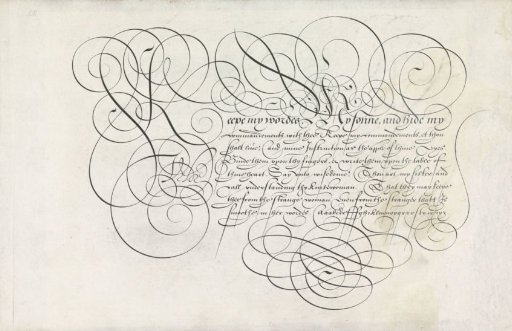 Keepe my wordes My sonne, and hide my
commandements with thee. Keepe my commandements, & thou
shalt live: and mine Instruction as the apple of thine Eyes
Binde them upon thy fingers, & write them upon the table of
thine heart. Say unto wisdome: Thou art my sister: and
call understanding thy Kinswoman. That they may keepe
thee from the strange woman. Even from the stranger that is
smothe in her wordes